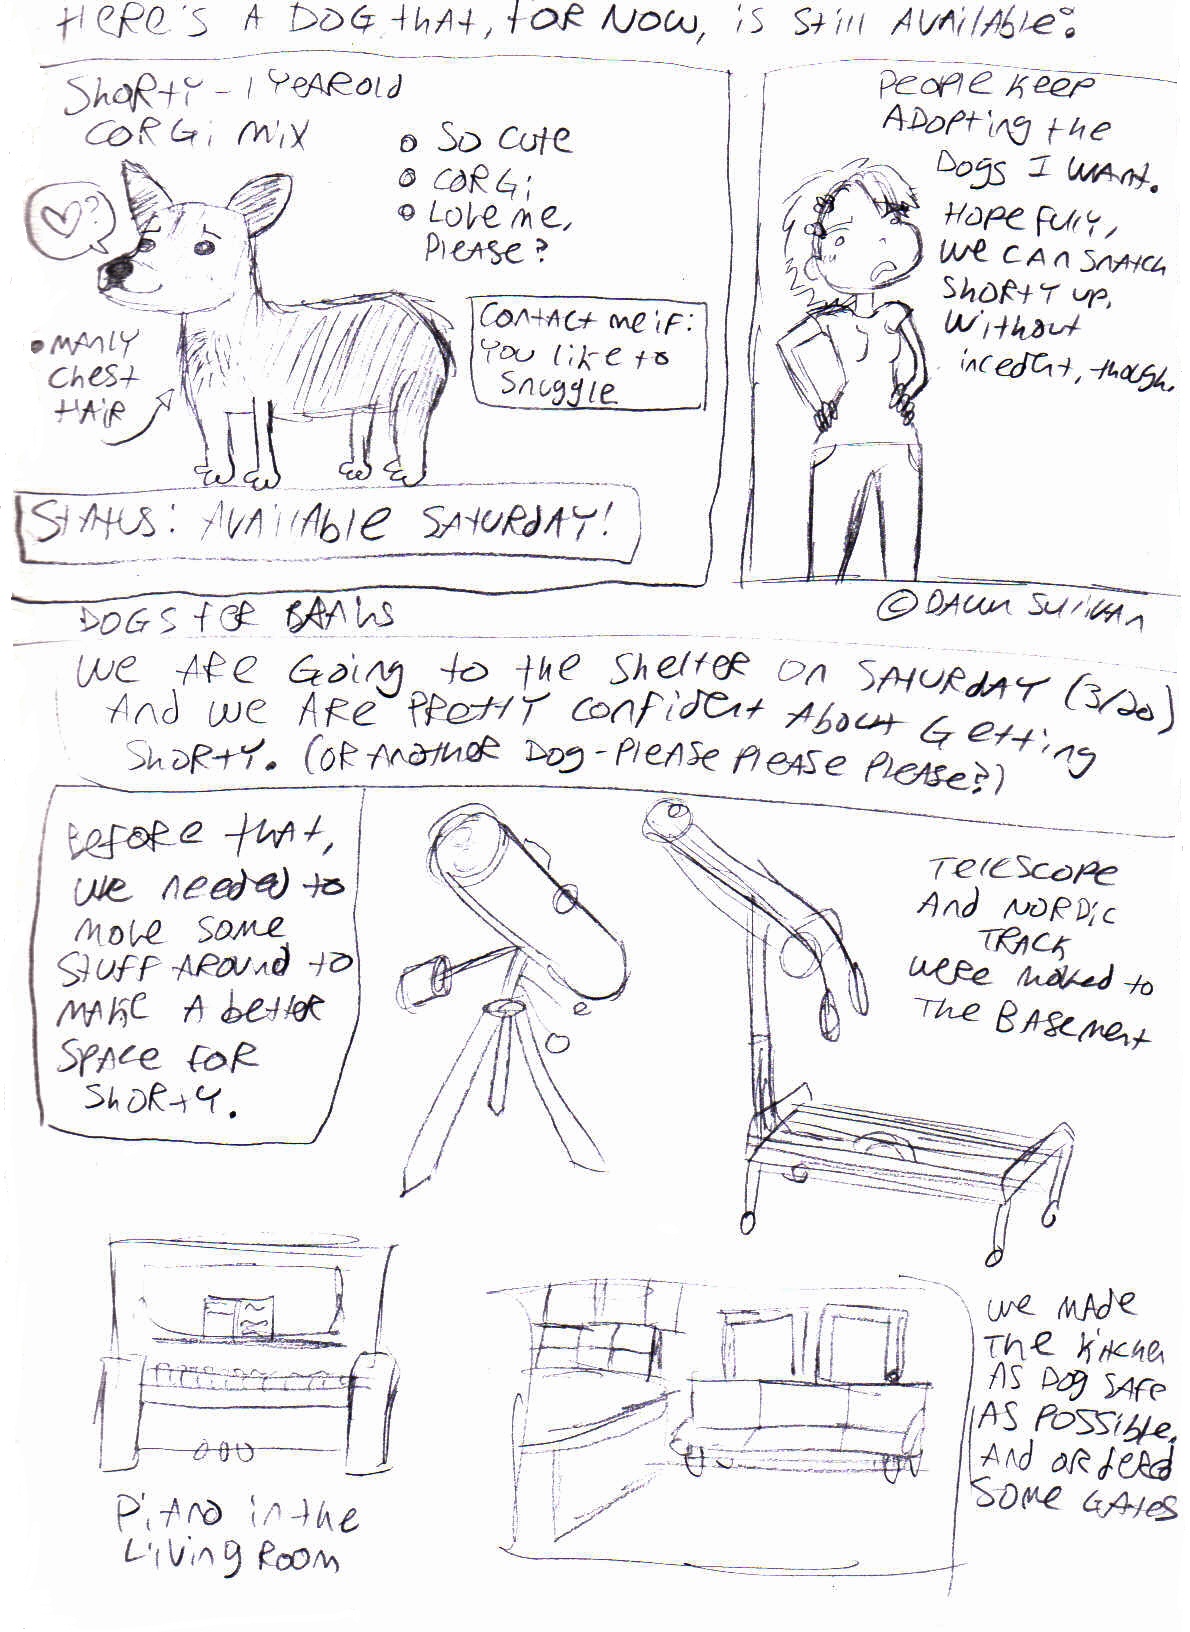 HERE'S A DOG that, FOR NOW, is still AVAilAble:
ShORtY - 1 YEAR Old
CORGi Mix
• SO CUTE
• CORGi
• Love me,
Please?
?
• MANLY
Chest
HAiR
CONtACt me iF:
You like to
Snuggle
StAtUS: AVAilAble SAtURdAY!
PEOPle KEEP
ADOPting the
Dogs I WANt.
HOPEFUllY,
We CAN SnAtch
ShORtY UP.
Without
incedent, though.
DOGS FOR BRAiNS
© DAWN SUllivAN
We ARE GOing to the Shelter On SAtURdAY (3/20)
And we ARE PREttY confident About Getting
ShORtY. (OR AnotheR Dog - PleAse PleAse PleAse?)
BeFORE thAt,
we needed to
move some
StuFF AROUnd to
MAKE A better
SPACE FOR
ShORtY.
TeleScope
And NORDic
TRACK
weRe moved to
The BAsement
PiAno in the
Living ROOM
We MAde
The Kitchen
AS DOg SAFe
AS POSSible.
And ORdeRed
SOMe GAtes